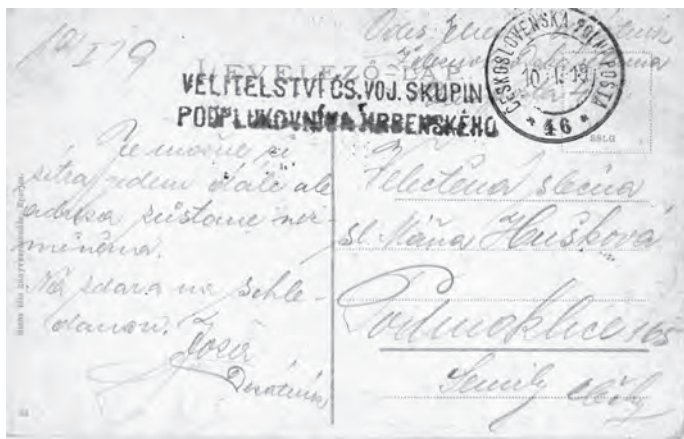 10/I 19
LEVELEZŐ-LAP
VELITELSTVÍ ČS. VOJ. SKUPIN
PODPLUKOVNÍKA HRBENSKÉHO
ČESKOSLOVENSKÁ POLNÍ POŠTA
10.I.19
* 46 *
Je možné že
zítra jedem dále ale
adresa zůstane nez-
měněna.
Na zdar a na schle-
danou.
Josef
Velectěná slečna
sl. Máňa Hušková
Podmoklice 165
Semily Čechy